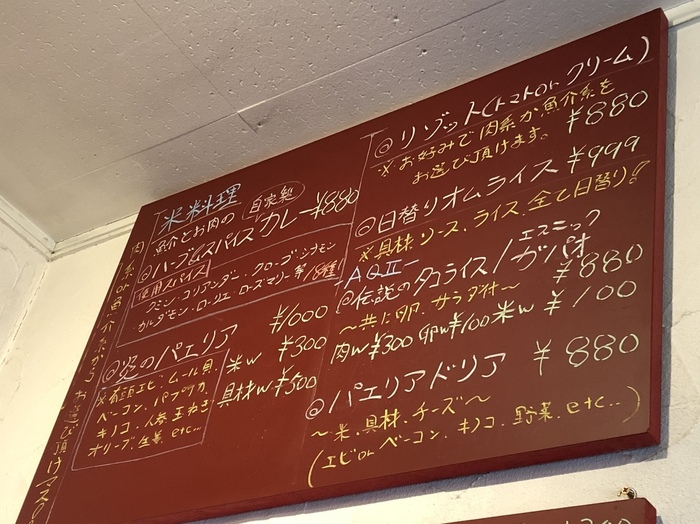 肉系or魚介系からお選び頂けマスの
米料理
魚介とお肉の 自家製
◎ハーブ&スパイスカレー ¥880
使用スパイス
クミン・コリアンダー・クローブ・シナモン
・カルダモン・ローリエ・ローズマリー等18種!
◎炎のパエリア ¥1000
※有頭エビ、ムール貝、
ベーコン、パプリカ、
キノコ、人参、玉ねぎ
オリーブ、生姜 etc...
米w ¥300
具材w ¥500
◎リゾット(トマトor クリーム)
¥880
※お好みで肉系か魚介系を
お選び頂けます。
◎日替りオムライス ¥999
※具材、ソース、ライス、全て日替り!!
-AQII-
◎伝説のタコライス/エスニックガパオ
¥880
〜共に卵、サラダ付〜
肉w¥300 卵w¥100 米w ¥100
◎パエリアドリア ¥880
〜米、具材、チーズ〜
(エビor ベーコン、キノコ、野菜、etc...)